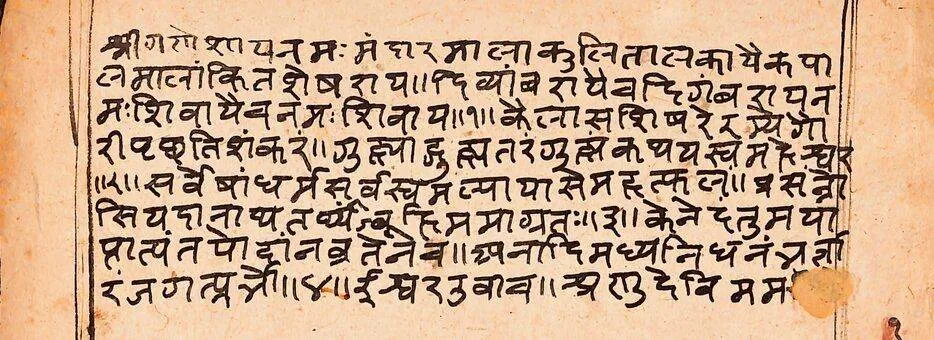 श्रीगणेशायनमः मंदारमालाकुलितालकायैकपा
लमालांकितशेषराय॥ दिव्यांबरायैचदिगंबरायन
मःशिवायैचनमःशिवाय॥१॥ कैलासशिषरेरम्येगौ
रीपृछतिशंकरं॥ गुह्याद्गुह्यतरंगुह्यंकथयस्वमहेश्वर
॥२॥ सर्वेषांधर्मसर्वस्वमल्पायासेमहत्फलं॥ प्रसन्नो
सियदानाथतथ्यंब्रूहिममाग्रतः॥३॥ केनेदंतुमया
प्राप्यंतपोदानव्रतेनैव॥ अनादिमध्यनिधनंभर्ता
रंजगत्प्रभो॥४॥ ईश्वरउवाच॥ श्रृणुदेविमम